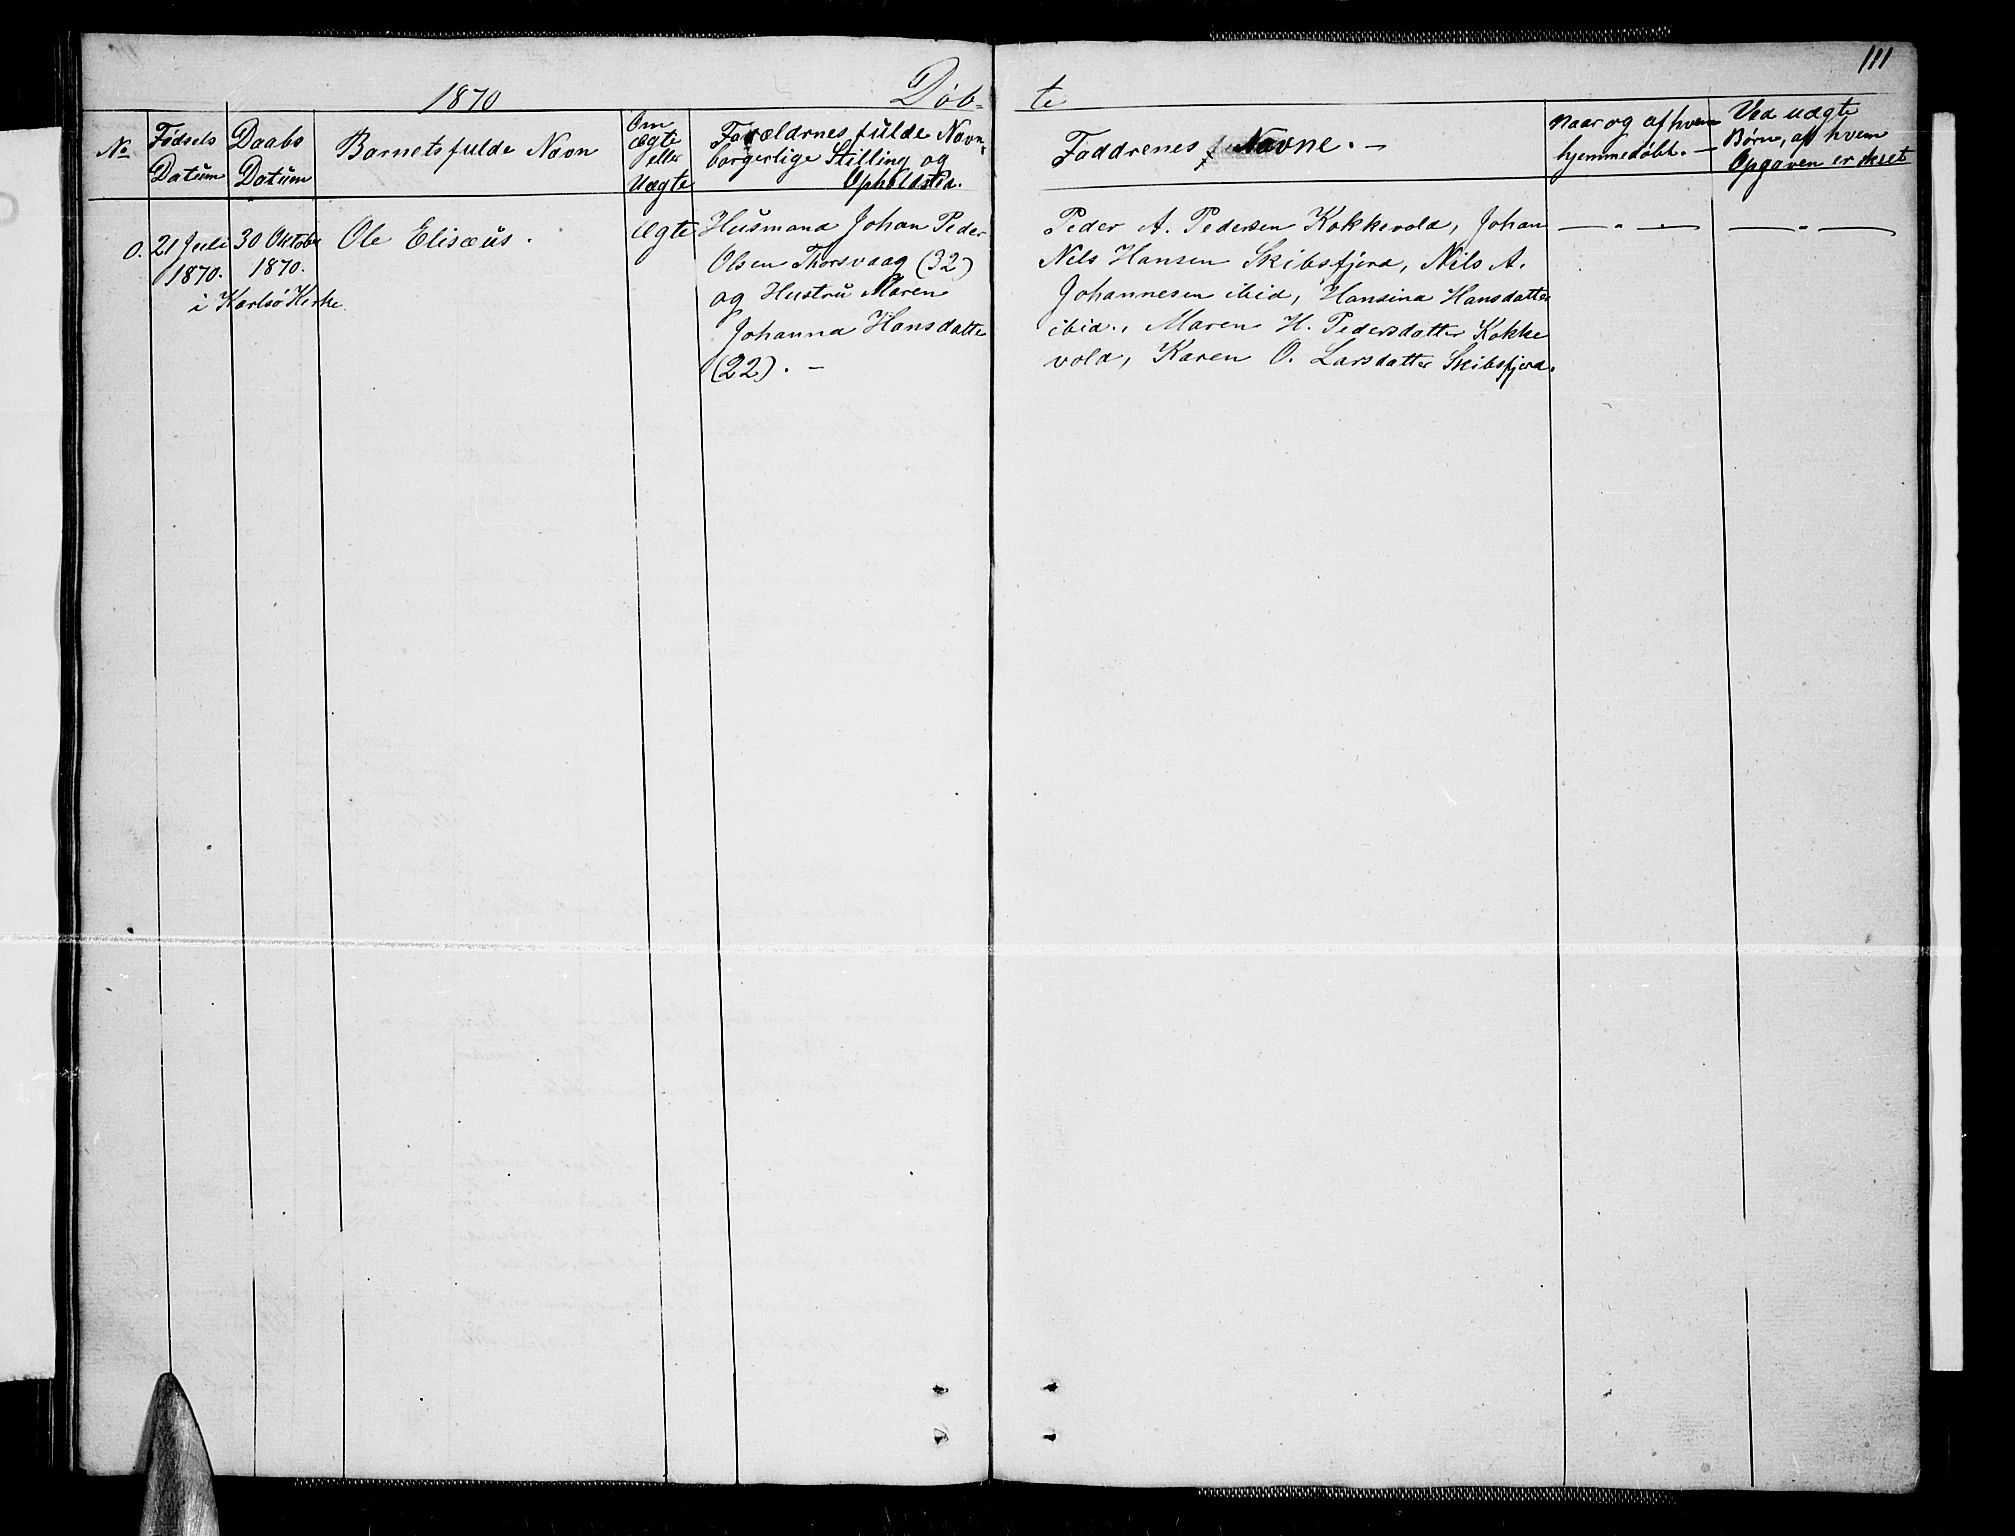 111
1870
Døb-
te
No
Fødsels
Datum
Daabs
Datum
Barnets fulde Navn
Om
Ægte
eller
Uægte
Forældrenes fulde Navn,
borgerlige Stilling og
Opholdsted.
Faddrenes Navne. -
Naar og af hvem
hjemmedøbt. -
Ved uægte
Børn, af hvem
Opgaven er skeet
0.
21 Juli
1870.
30 Oktober
1870.
i Karlsø Kirke.
Ole Elisæus.
Ægte
Husmand Johan Peder
Olsen Thorsvaag (32)
og Hustru Maren
Johanna Hansdatter
(22). -
Peder A. Pedersen Kokkevold, Johan
Nils Hansen Skibsfjord, Nils A.
Johannesen ibid, Hansina Hansdatter
ibid., Maren H. Pedersdatter Kokke
vold, Karen O. Larsdatter Skibsfjord.
— " —
— " —